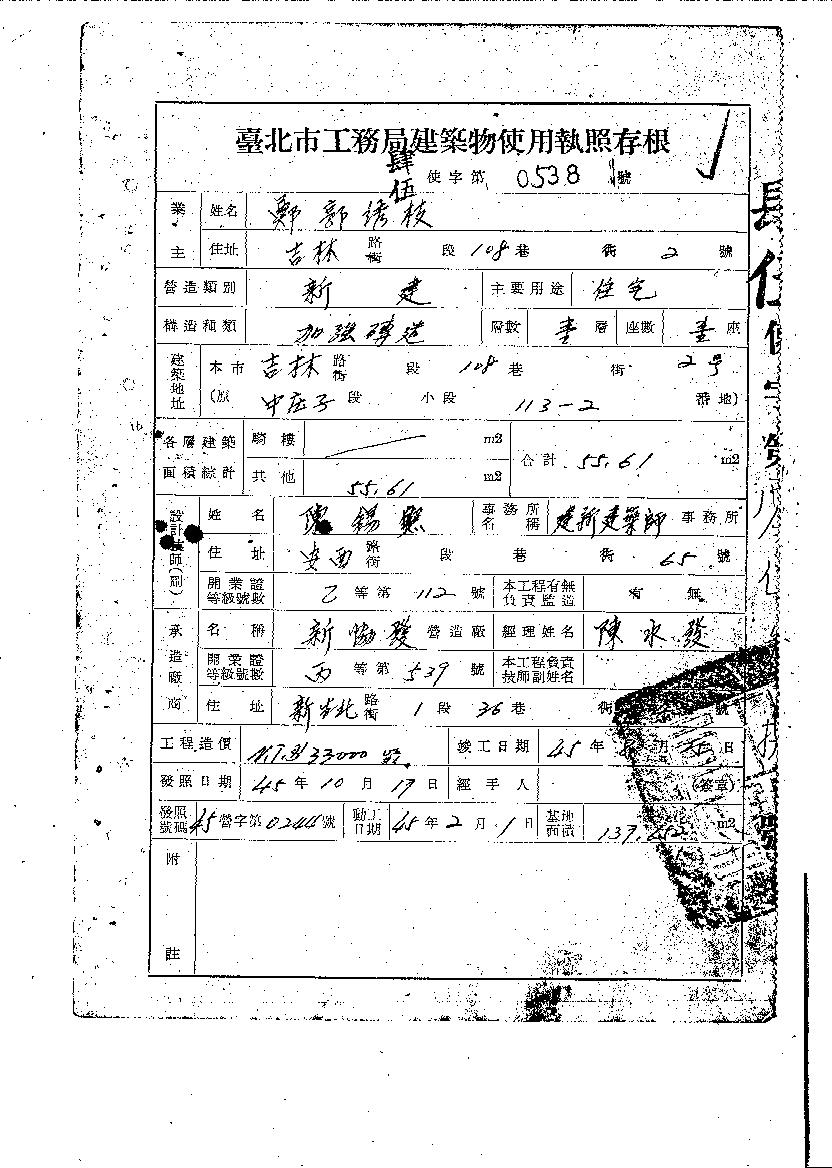 臺北市工務局建築物使用執照存根
肆伍 使字第 0538 號
業主 姓名 鄭郭綉枝
住址 吉林 路街 段 108 巷 街 2 號
營造類別 新建 主要用途 住宅
構造種類 加強磚造 層數 壹 層 座數 壹 座
建築地址 本市 吉林 路街 段 108 巷 街 2号
(原 中庄子 段 小段 113-2 番地)
各層建築面積綜計 騎樓 m2 合計 55.61 m2
其他 55.61 m2
設計技師(副) 姓名 陳錫 事務所名稱 建新建築師 事務所
住址 安西 路街 段 巷 街 65 號
開業證等級號數 乙 等第 112 號 本工程有無負責監造 有 無
承造廠商 名稱 新協發 營造廠 經理姓名 陳水發
開業證等級號數 丙 等第 539 號 本工程負責技師副姓名
住址 新生北 路街 1 段 36 巷 街 號
工程造價 N.T.$ 33000 竣工日期 45 年 月 日
發照日期 45 年 10 月 17 日 經手人 (簽章)
發照號碼 45 營字第 0244 號 動工日期 45 年 2 月 1 日 基地面積 137. m2
附註